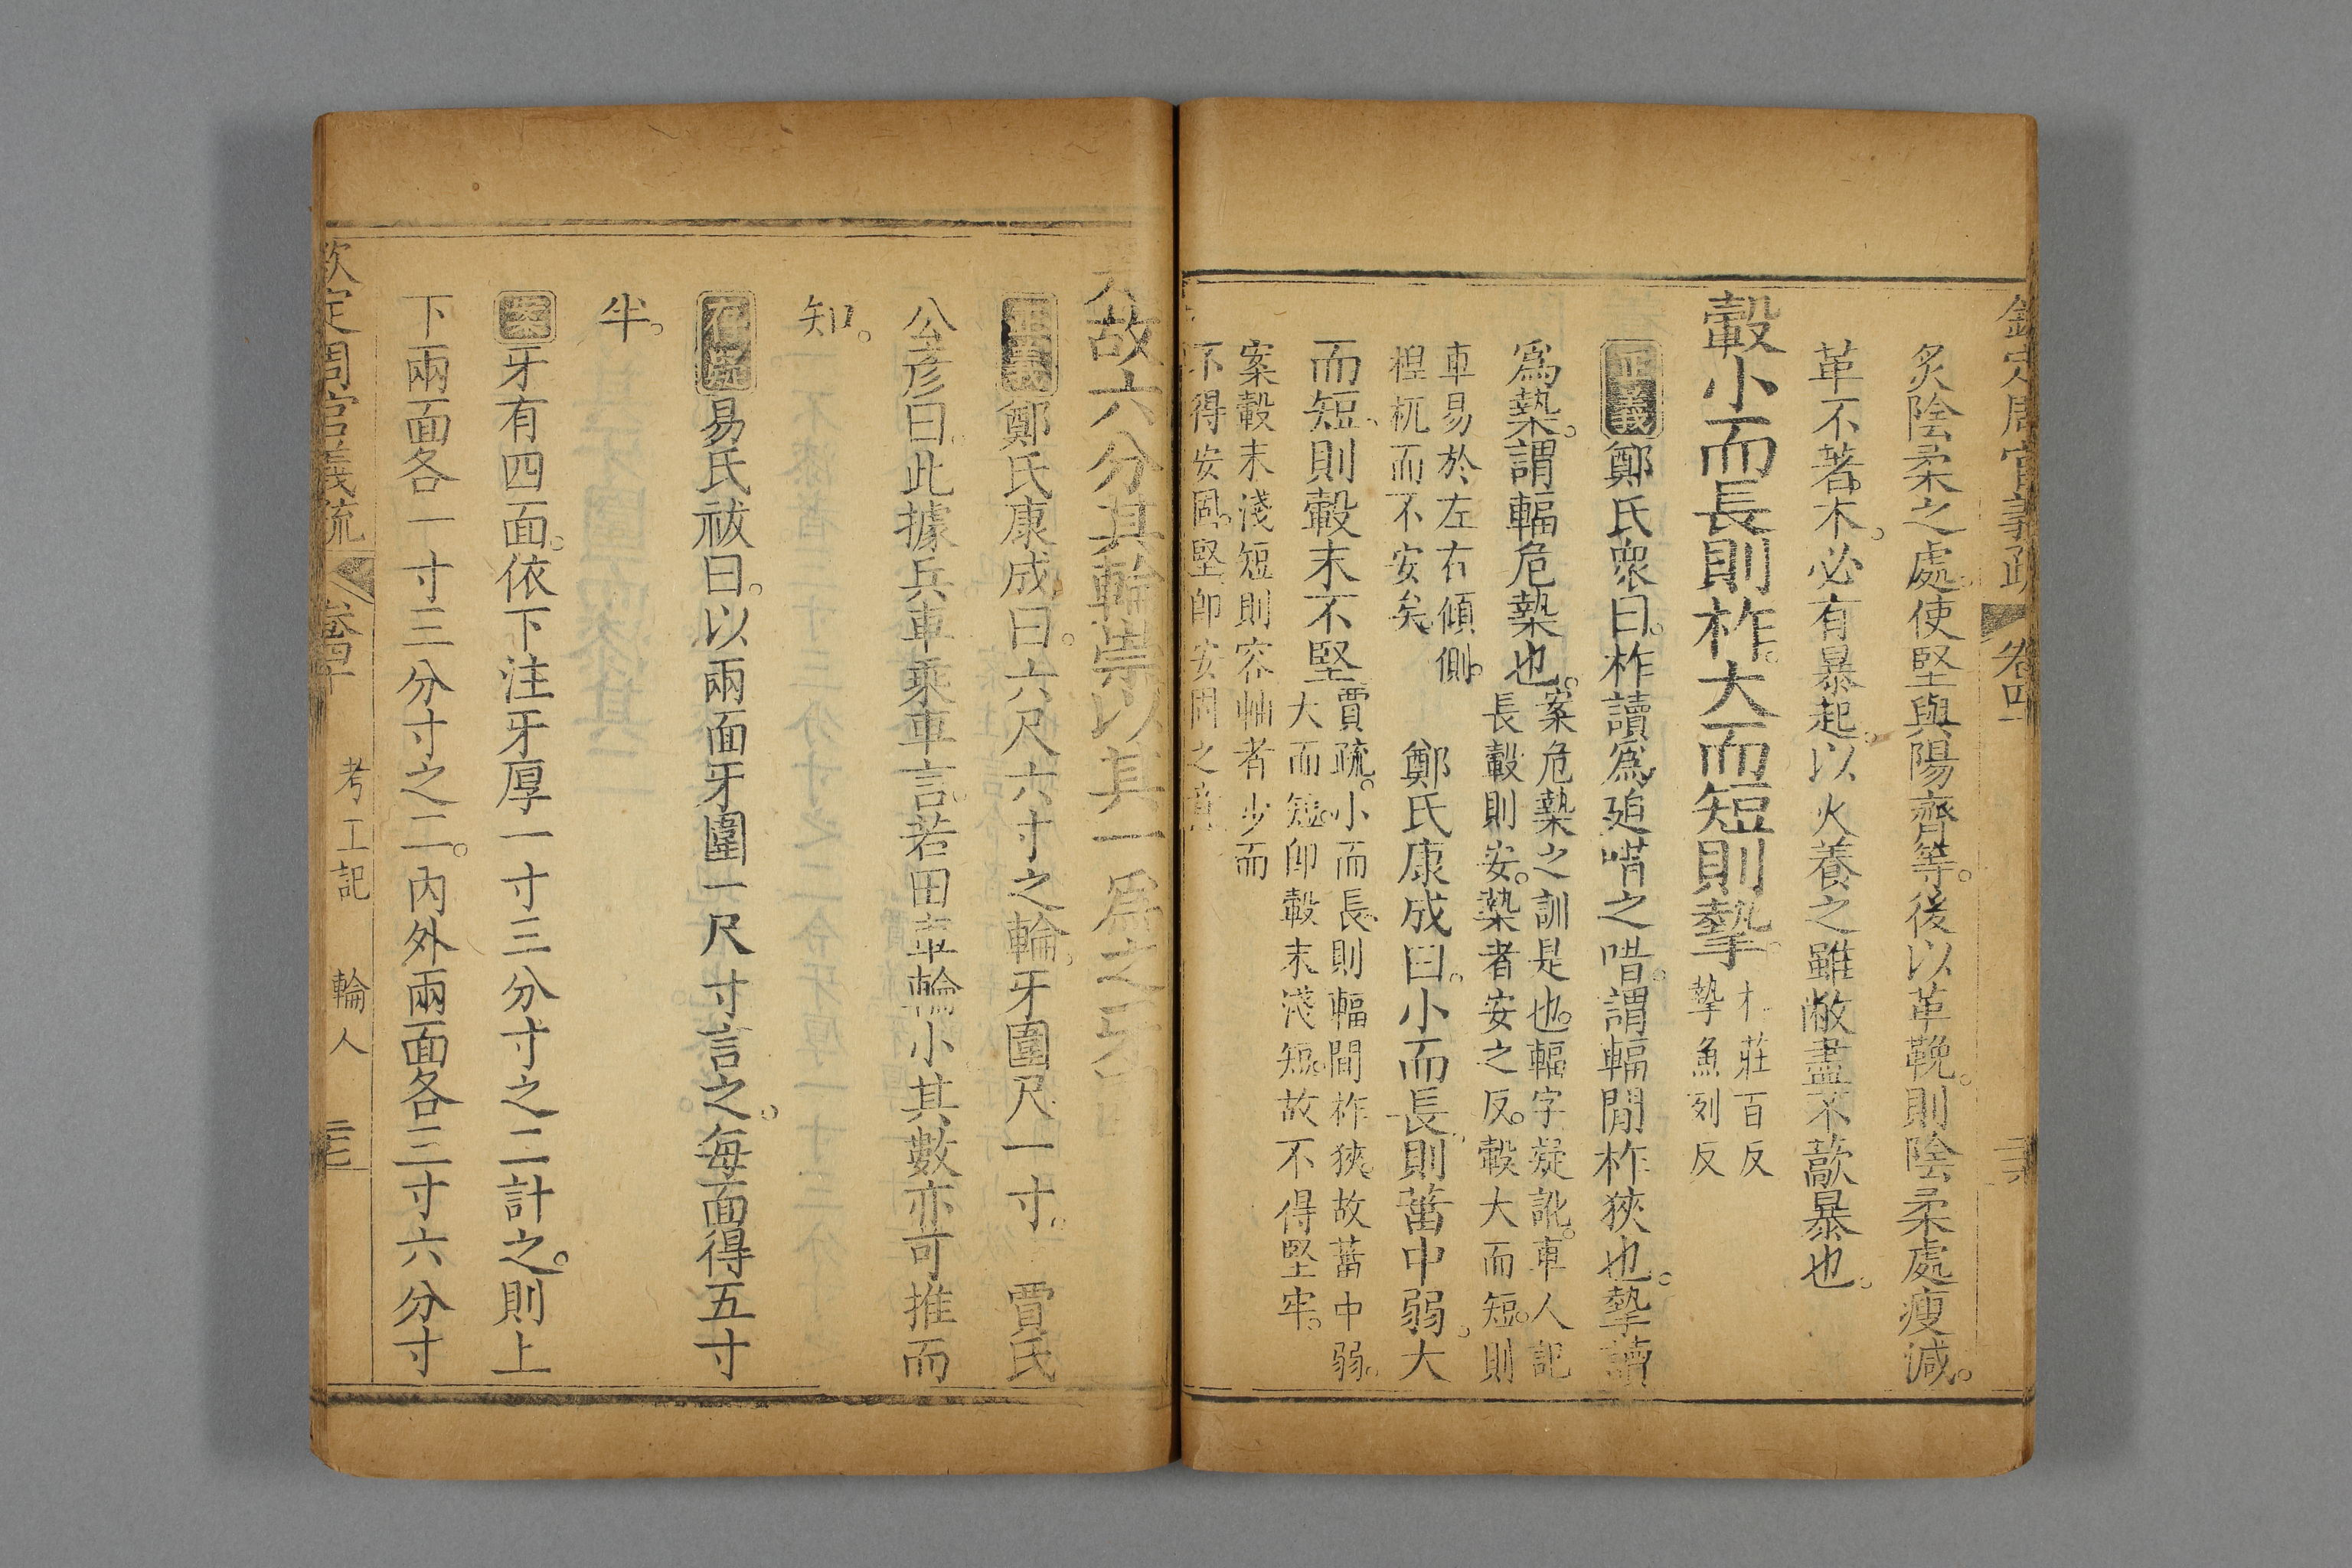 欽定周官義疏 卷四十
炙陰柔之處。使堅與陽齊等。後以革鞔。則陰柔處瘦減。
革不著木。必有暴起。以火養之。雖敝盡不藃暴也。
轂小而長則柞。大而短則摯。
柞莊百反
摯魚列反
正義鄭氏衆曰。柞讀爲迫唶之唶。謂輻閒柞狹也。摯讀
爲槷。謂輻危槷也。
案危槷之訓是也。輻字疑訛。車人記
長轂則安。槷者安之反。轂大而短。則
車易於左右傾側。
桯杌而不安矣。
鄭氏康成曰。小而長。則菑中弱。大
而短。則轂末不堅
賈疏。小而長。則輻間柞狹。故菑中弱。
大而短。卽轂末淺短。故不得堅牢。
案轂末淺短則容軸者少而
不得安固。堅卽安固之意
故六分其輪崇以其一爲之牙圍
正義鄭氏康成曰。六尺六寸之輪。牙圍尺一寸。 賈氏
公彥曰。此據兵車乘車言。若田車輪小其數亦可推而
知。
存疑易氏祓曰。以兩面牙圍一尺寸言之。每面得五寸
半。
案牙有四面。依下注牙厚一寸三分寸之二計之。則上
下兩面各一寸三分寸之二。內外兩面各三寸六分寸
欽定周官義疏 卷四十 考工記 輪人